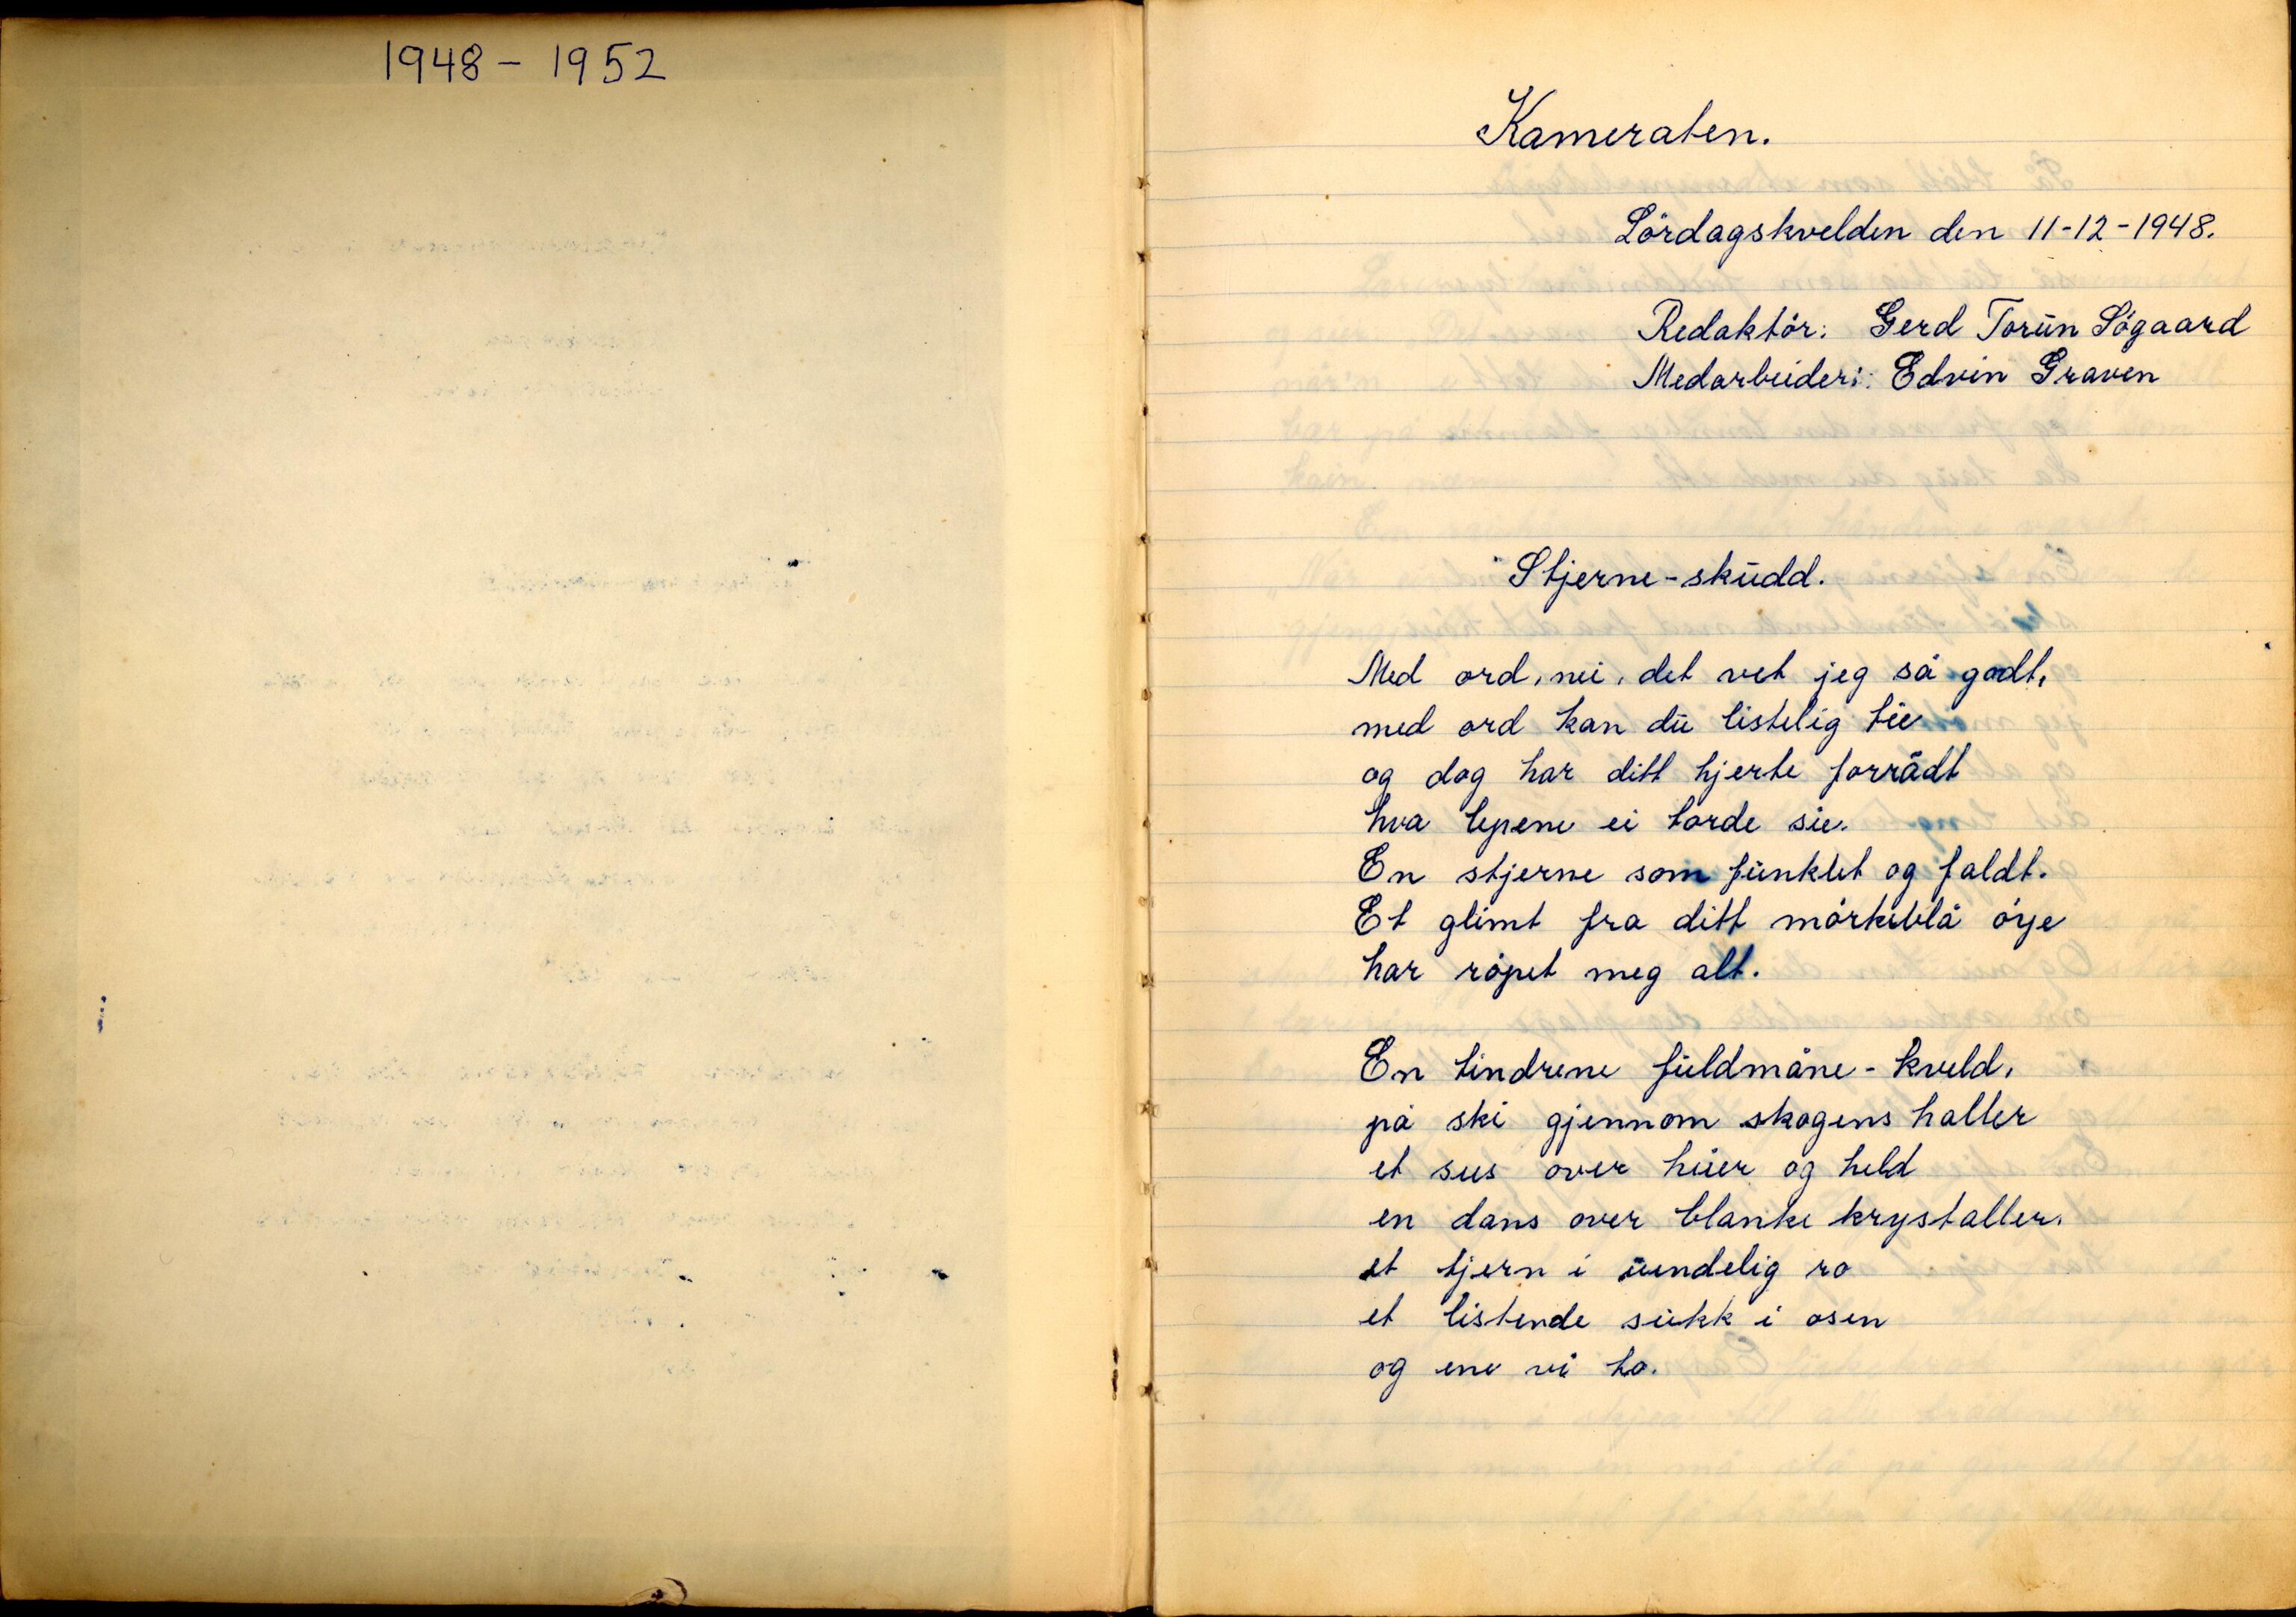 1948 - 1952
Kameraten.
Lördagskvelden den 11-12-1948.
Redaktör: Gerd Torŭn Sögaard
Medarbeider: Edvin Graven
Stjerne-skŭdd.
Med ord, nei, det vet jeg så godt,
med ord kan dŭ listelig tie
og dog har ditt hjerte forrådt
hva lepene ei torde sie.
En stjerne som fŭnklet og faldt.
Et glimt fra ditt mörkeblå öye
har röpet meg alt.
En tindrene fŭldmåne-kveld,
på ski gjennom skogens haller
et sus over hŭer og held
en dans over blanke krystaller.
et tjern i ŭendelig ro
et listende sŭkk i osen
og ene vi to.